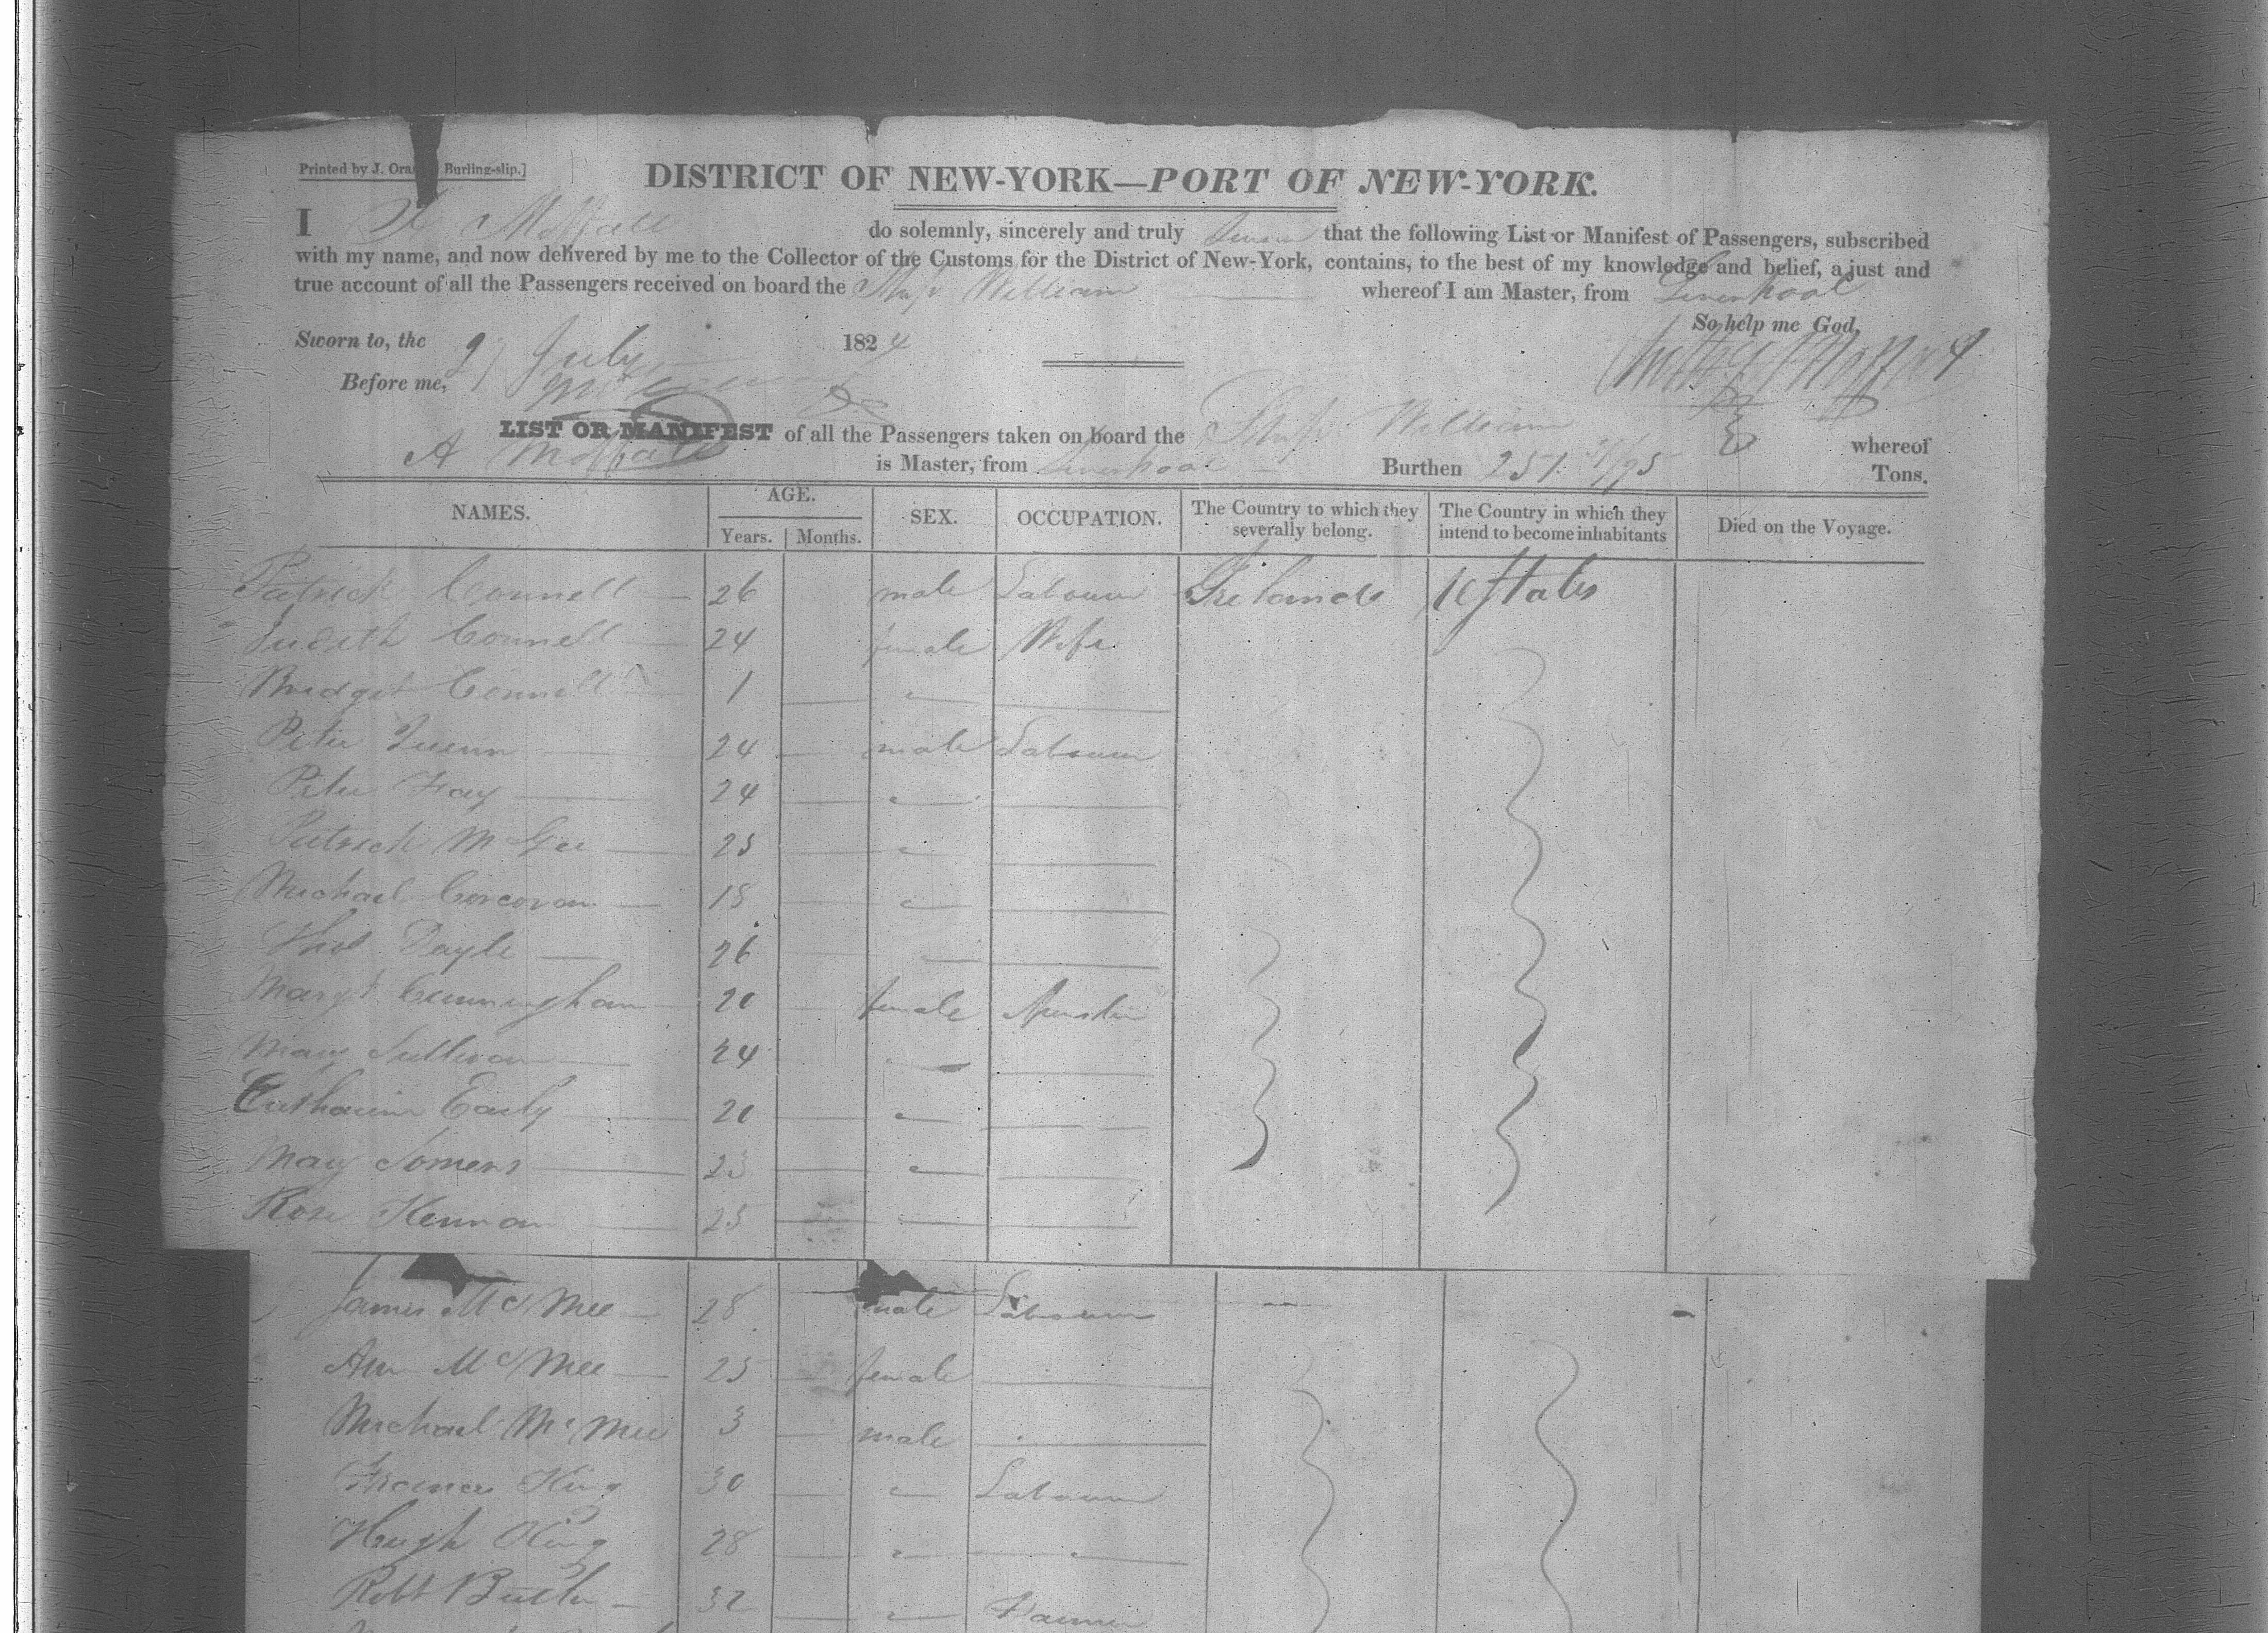 Printed by J. Ora Burling-slip.]
DISTRICT OF NEW-YORK—PORT OF NEW-YORK.
I A Moffatt do solemnly, sincerely and truly swear that the following List or Manifest of Passengers, subscribed
with my name, and now delivered by me to the Collector of the Customs for the District of New-York, contains, to the best of my knowledge and belief, a just and
true account of all the Passengers received on board the Ship William whereof I am Master, from Liverpool
So help me God,
Sworn to, the 9 July 1824
Before me,
LIST OR MANIFEST of all the Passengers taken on board the Ship William whereof
A Moffatt is Master, from Liverpool Burthen 257 /95 Tons.
NAMES. AGE. SEX. OCCUPATION. The Country to which they severally belong. The Country in which they intend to become inhabitants Died on the Voyage.
Years. Months.
Patrick Connell 26 male Labourer Ireland U States
Judith Connell 24 female Wife
Bridget Connell 1 "
Peter Quinn 24 male Labourer
Peter Fay 24 "
Patrick McGee 25 "
Michael Corcoran 18 "
Thos Dayle 26
Margt Cunningham 20 female Spinster
Mary Sullivan 24
Catharine Early 20 "
Mary Somers 23 "
Rose Kennan 25
James McMee 28 male Labourer
Ann McMee 25 female
Michael McMee 3 male
Francis King 30 " Labourer
Hugh King 28 " "
Robt Butler 32 " Farmer